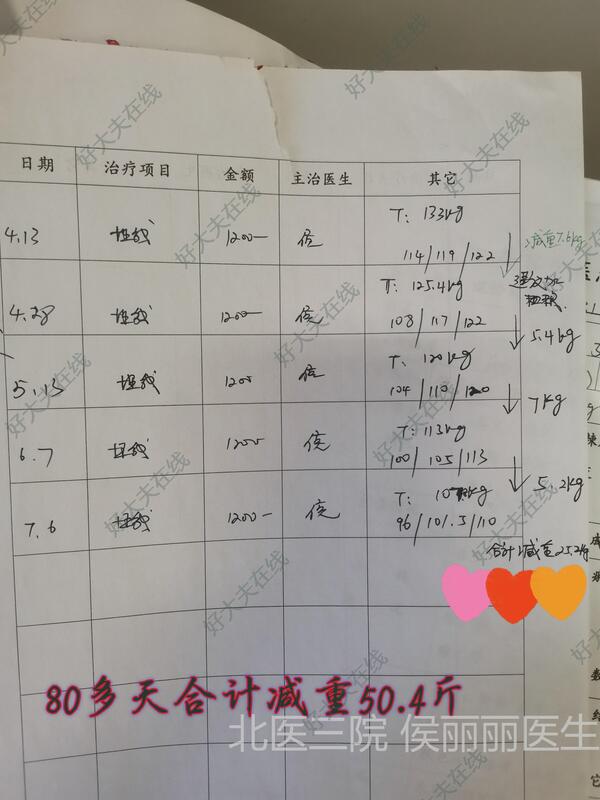 日期 治疗项目 金额 主治医生 其它
4.13 埋线 1200- 侯 T: 133kg
114/119/122 ↓ 减重7.6kg
4.28 埋线 1200- 侯 T: 125.4kg
108/117/122 ↓ 5.4kg
5.13 埋线 1200 侯 T: 120kg
104/110/120 ↓ 7kg
6.7 埋线 1200 侯 T: 113kg
100/105/113 ↓ 5.2kg
7.6 埋线 1200- 侯 T: kg
96/101.5/110
合计减重25.2kg
80多天合计减重50.4斤
北医三院 侯丽丽医生
好大夫在线